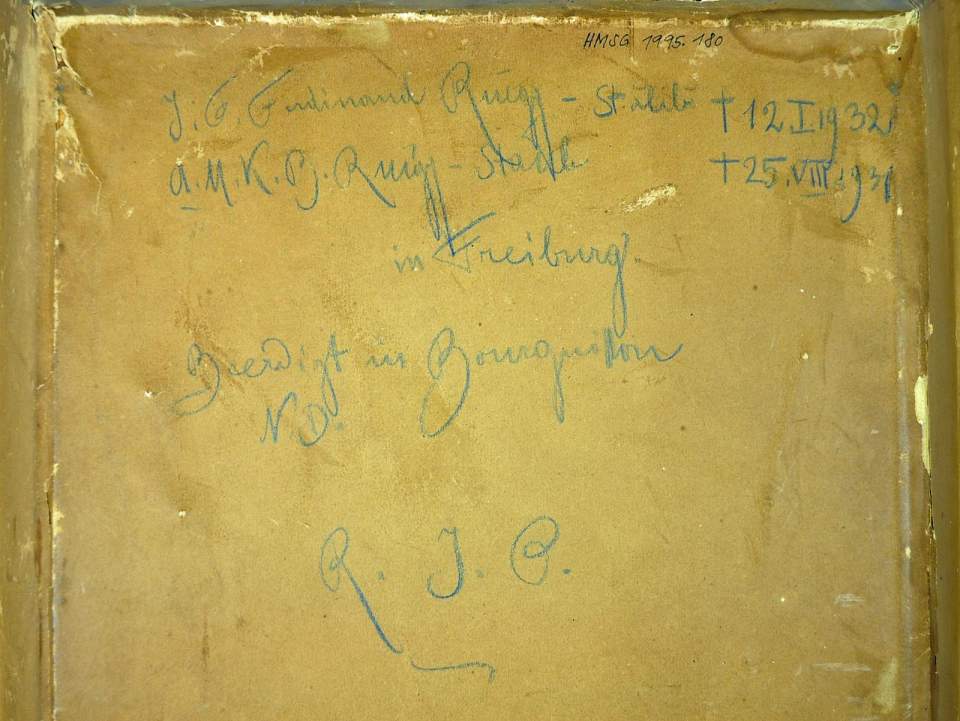 HMSG 1995.180
J. F. Ferdinand Rüegg - Stähli † 12.I.1932
A. M. K. B. Rüegg - † 25.VIII.1931
in Freiburg.
Beerdigt in Bourguillon
N D.
R. J. P.